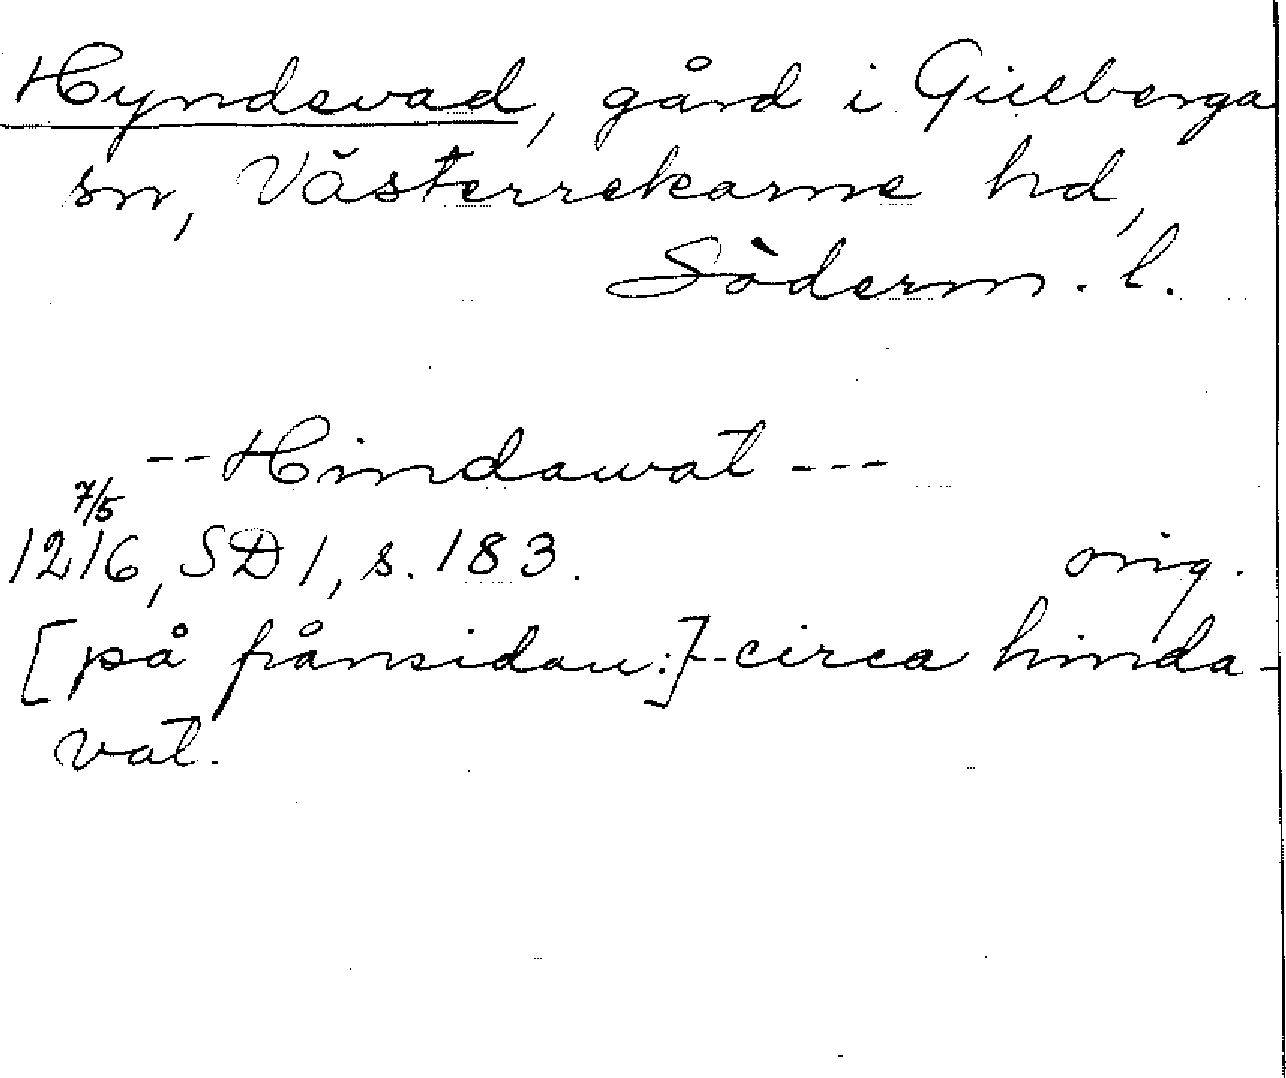 Hyndevad, gård i Gillberga
sn, Västerrekarne hd,
Söderm. l.
-- Hindawat ---
7/5
1216, SD 1, s. 183. orig.
[på frånsidan:] -- circa hinda-
vat.